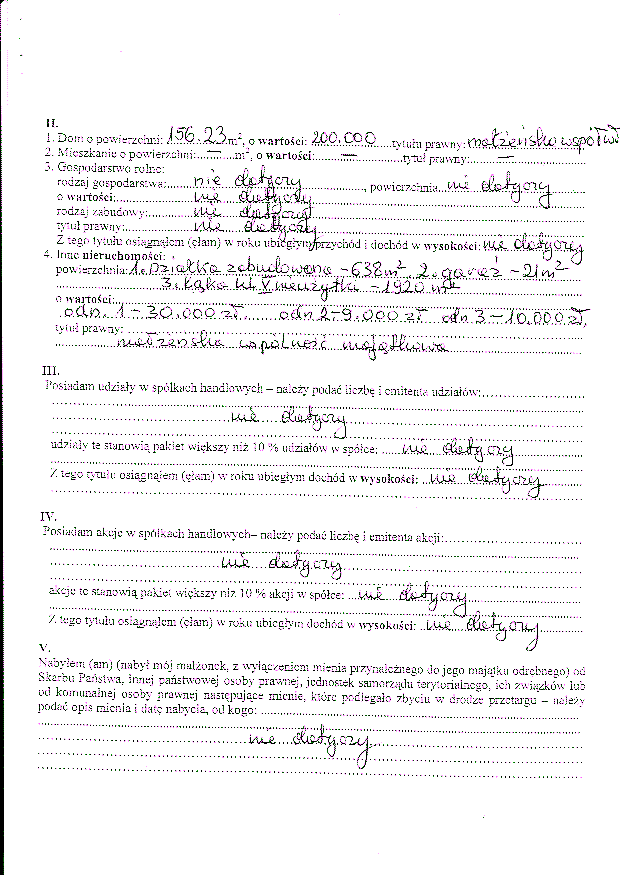 II.
1. Dom o powierzchni: 156,23 m², o wartości: 200.000 tytułu prawny: małżeńska współwł
2. Mieszkanie o powierzchni: — m², o wartości: — tytuł prawny: —
3. Gospodarstwo rolne:
rodzaj gospodarstwa: nie dotyczy, powierzchnia nie dotyczy
o wartości: nie dotyczy
rodzaj zabudowy: nie dotyczy
tytuł prawny: nie dotyczy
Z tego tytułu osiągnąłem (ęłam) w roku ubiegłym przychód i dochód w wysokości: nie dotyczy
4. Inne nieruchomości:
powierzchnia: 1. Działka zabudowana – 638 m², 2. garaż – 21 m²
3. Łąka kl V nieużytki – 1920 m²
o wartości:
odn. 1 – 30.000 zł. odn 2 – 9.000 zł odn 3 – 10.000 zł.
tytuł prawny:
małżeńska wspólność majątkowa
III.
Posiadam udziały w spółkach handlowych – należy podać liczbę i emitenta udziałów:
nie dotyczy
udziały te stanowią pakiet większy niż 10 % udziałów w spółce: nie dotyczy
Z tego tytułu osiągnąłem (ęłam) w roku ubiegłym dochód w wysokości: nie dotyczy
IV.
Posiadam akcje w spółkach handlowych– należy podać liczbę i emitenta akcji:
nie dotyczy
akcje te stanowią pakiet większy niż 10 % akcji w spółce: nie dotyczy
Z tego tytułu osiągnąłem (ęłam) w roku ubiegłym dochód w wysokości: nie dotyczy
V.
Nabyłem (am) (nabył mój małżonek, z wyłączeniem mienia przynależnego do jego majątku odrębnego) od
Skarbu Państwa, innej państwowej osoby prawnej, jednostek samorządu terytorialnego, ich związków lub
od komunalnej osoby prawnej następujące mienie, które podlegało zbyciu w drodze przetargu – należy
podać opis mienia i datę nabycia, od kogo:
nie dotyczy